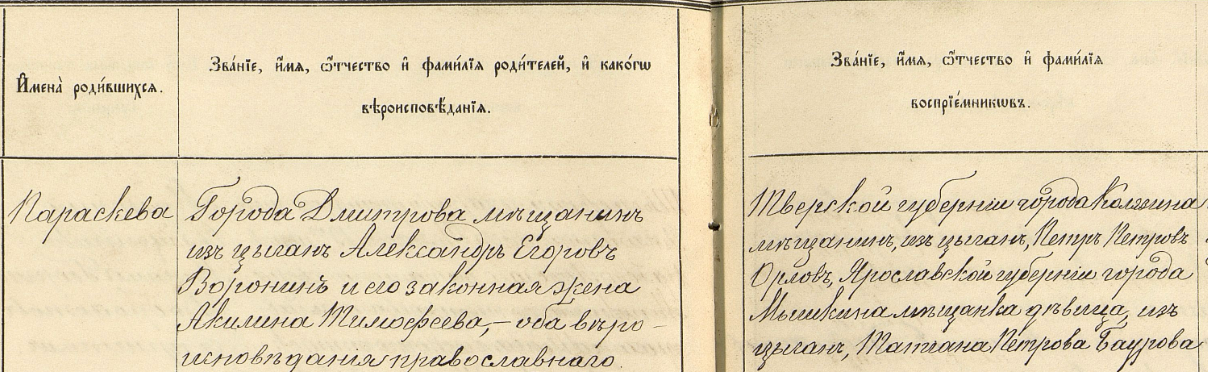 Имена̀ роди́вшихся.
Зва́нїе, и҆́мя, ѻ҆́тчество и҆ фами́лїя роди́телей, и҆ како́гѡ
вѣроисповѣ́данїя.
Параскева
Города Дмитрова мѣщанинъ
изъ цыганъ Александръ Егоровъ
Воронинъ и его законная жена
Акилина Тимофеева, – оба вѣро–
исповѣданія православнаго.
Зва́нїе, и҆́мя, ѻ҆́тчество и҆ фами́лїя
воспрїе́мникѡвъ.
Тверской губерніи города Колязина
мѣщанинъ, изъ цыганъ, Петръ Петровъ
Орловъ, Ярославской губерніи города
Мышкина мѣщанка дѣвица, изъ
цыганъ, Татіана Петрова Баурова